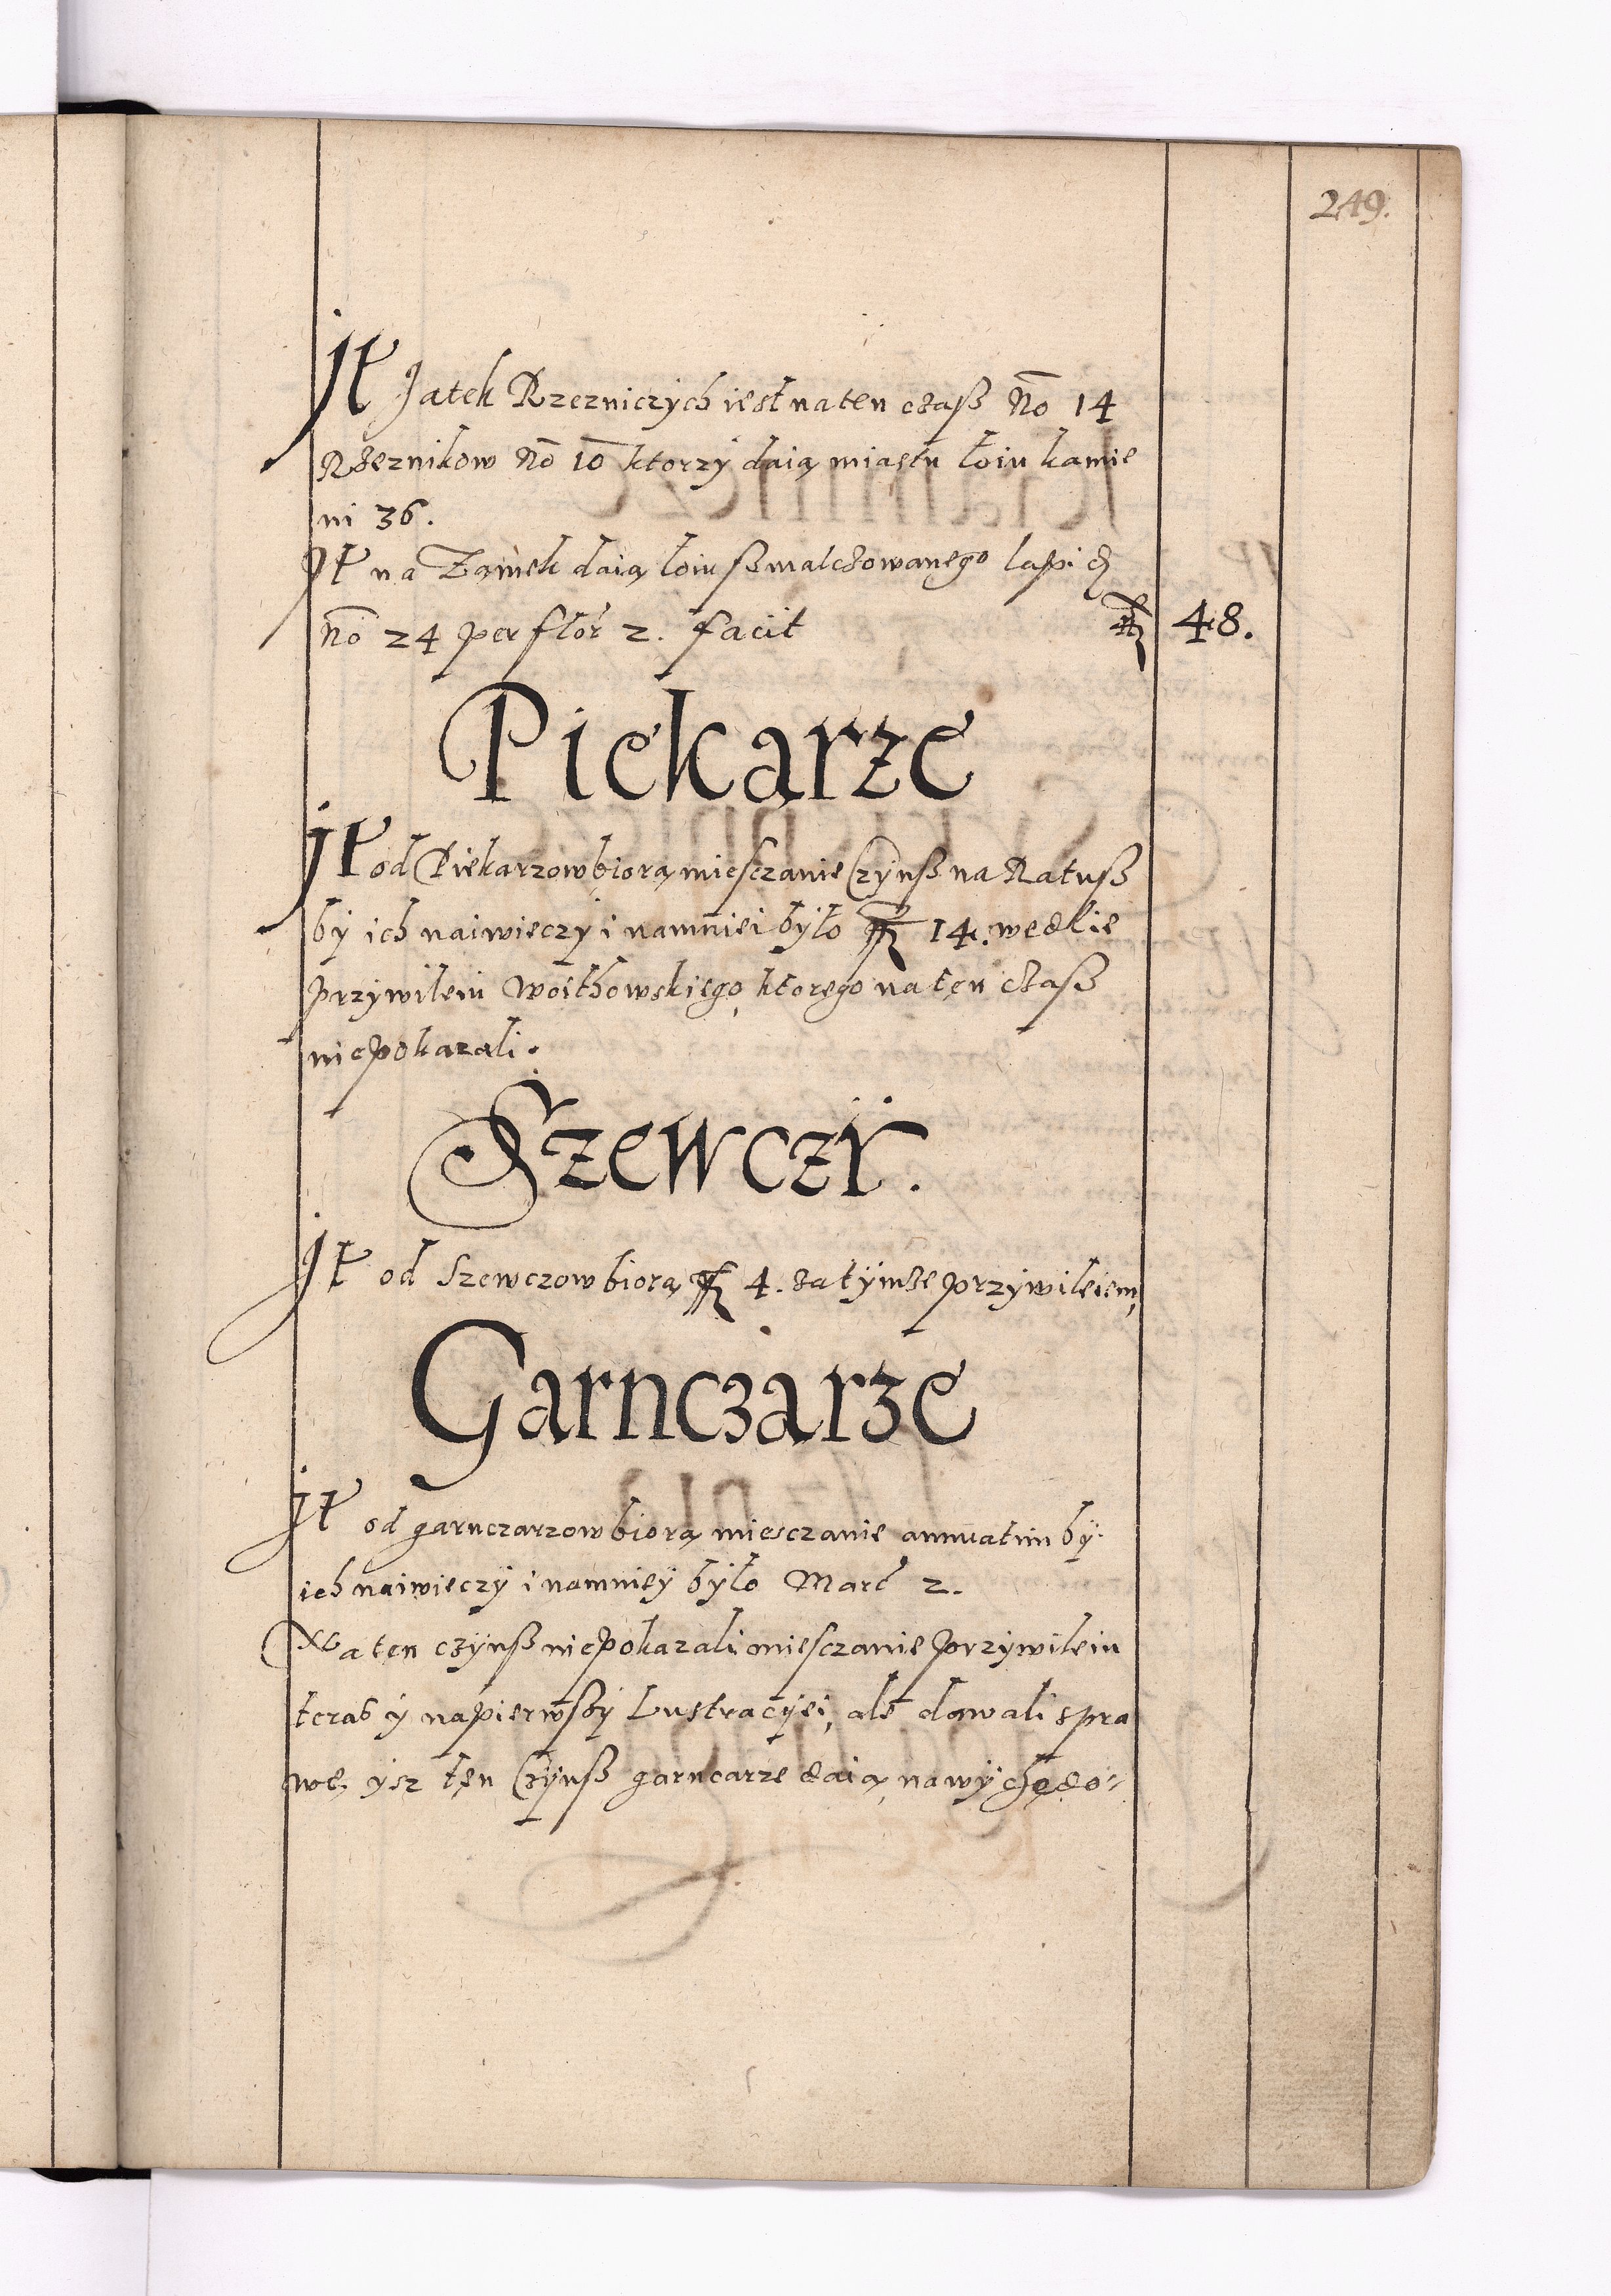 249.
It Jatek Rzezniczych iest na ten czasß No 14
Rzeznikow No 10 ktorzy daią miastu łoiu kamie
ni 36.
It na Zamek daią łoiu szmalczowanego lapid
No 24 per flor 2. facit 48.
Piekarze
It od Piekarzow biorą miesczanie Czynß na Ratuß
by ich naiwieczy i namniei było 14. wedlie
przywileiu woithowskiego, ktorego na ten czaß
nie pokazali.
Szewczy.
It od Szewczow biorą 4. za tymze przywileiem,
Garnczarze
It od garnczarzow biorą miesczanie annuatim by
ich naiwieczy i namniey było Marc 2.
Na ten czynß nie pokazali miesczanie przywileiu
teras y napierwßy Lustracyei, ale dawali spra
wę, ysz ten Czynß garncarze daią, na wychędo